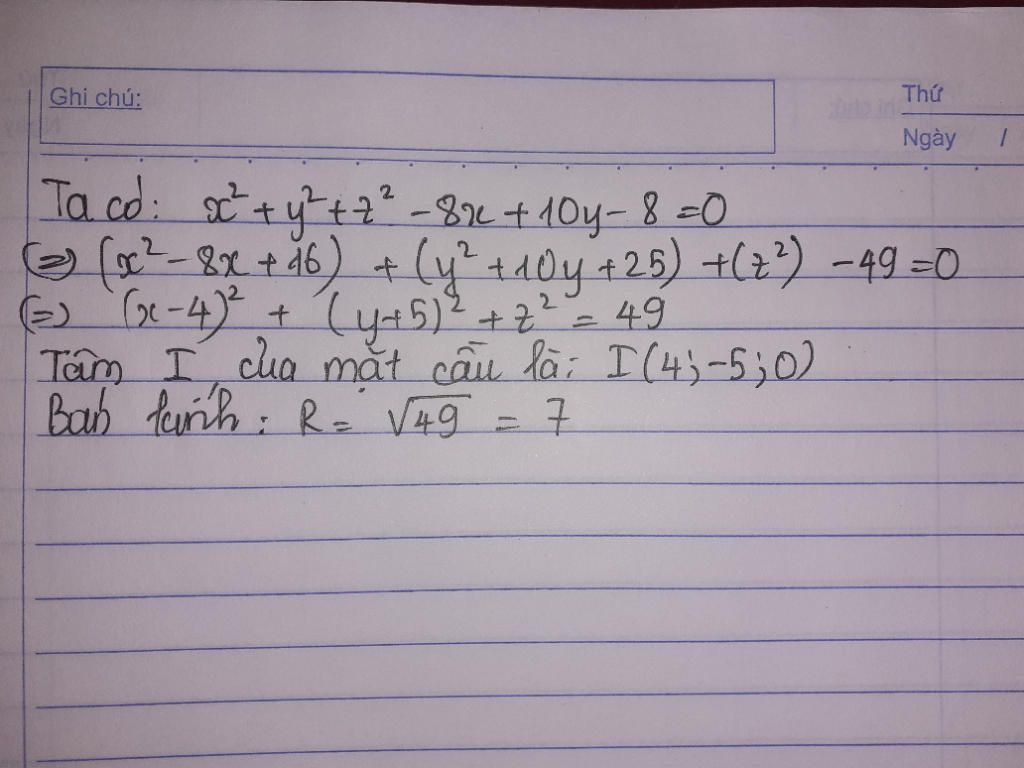 Ghi chú:
Thứ
Ngày /
Ta có: x² + y² + z² - 8x + 10y - 8 = 0
(=) (x² - 8x + 16) + (y² + 10y + 25) + (z²) - 49 = 0
(=) (x - 4)² + (y + 5)² + z² = 49
Tâm I của mặt cầu là: I(4; -5; 0)
Bán kính: R = √49 = 7